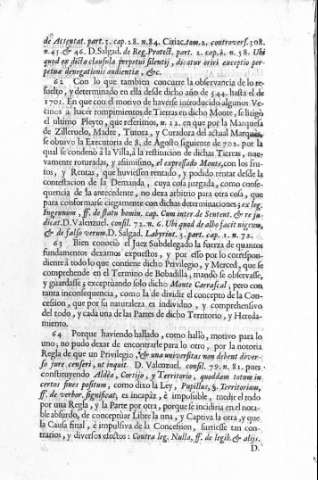 de Attentat. part. 3. cap. 28. n. 84. Ciriac. tom. 2. controvers. 308.
n. 45 & 46. D. Salgad. de Reg. Protect. 2. part. cap. 8. n. 58. Ubi
quod ex dicta clausula perpetui silentij, dicatur oriri exceptio per-
petuæ denegationis audientiæ, &c.
62 Con lo que tambien concurre la observancia de lo re-
suelto, y determinado en ella desde dicho año de 544. hasta el de
1701. En que con el motivo de haverse introducido algunos Ve-
cinos à hacer rompimientos de Tierras en dicho Monte, se litigò
el ultimo Pleyto, que referimos, n. 22. en que por la Marquesa
de Zilleruelo, Madre, Tutora, y Curadora del actual Marquès,
se obtuvo la Executoria de 8. de Agosto siguiente de 702. por la
qual se condenò à la Villa, à la restitucion de dichas Tierras, nue-
vamente roturadas, y assimismo, el expressado Monte, con los fru-
tos, y Rentas, que huviessen rentado, y podido rentar desde la
contestacion de la Demanda, cuya cosa juzgada, como conse-
quencia de la antecedente, no dexa arbitrio para otra cosa, que
para conformarse ciegamente con dichas determinaciones, ex leg.
Ingenuum, ff. de statu homin. cap. Cum inter de Sentent. & re ju-
dicat. D. Valenzuel. consil. 72. n. 6. Ubi quod de albo facit nigrum,
& de falso verum. D. Salgad. Labyrint. 3. part. cap. 1. n. 72.
63 Bien conociò el Juez Subdelegado la fuerza de quantos
fundamentos dexamos expuestos, y por esso por lo correspon-
diente à todo lo que contiene dicho Privilegio, y Merced, que se
comprehende en el Termino de Bobadilla, mandò se observasse,
y guardasse; exceptuando solo dicho Monte Carrascal, pero con
tanta inconsequencia, como la de dividir el concepto de la Con-
cesion, que por su naturaleza es individuo, y comprehensivo
del todo, y cada una de las Partes de dicho Territorio, y Hereda-
miento.
64 Porque haviendo hallado, como hallò, motivo para lo
uno, no pudo dexar de encontrarle para lo otro, por la notoria
Regla de que un Privilegio, & una universitas non debent diver-
so jure censeri, ut inquit. D. Valenzuel. consil. 79. n. 81. pues
constituyendo Aldèa, Cortijo, y Territorio, quoddam totum in
certos fines positum, como dixo la Ley, Pupillus, §. Territorium,
ff. de verbor. significat. es incapàz, è imposible, medir el todo
por una Regla, y la Parte por otra, porque se incidiria en el nota-
ble absurdo, de conceptuar Libre la una, y Captiva la otra, y que
la Causa final, è impulsiva de la Concesion, surtiesse tan con-
trarios, y diversos efectos: Contra leg. Nulla, ff. de legib. & alijs.
D.